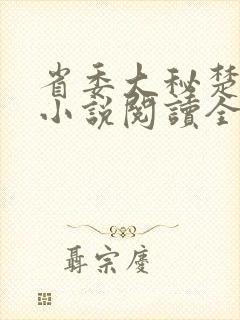 省委大秘楚
小說閱讀全
聶宗慶